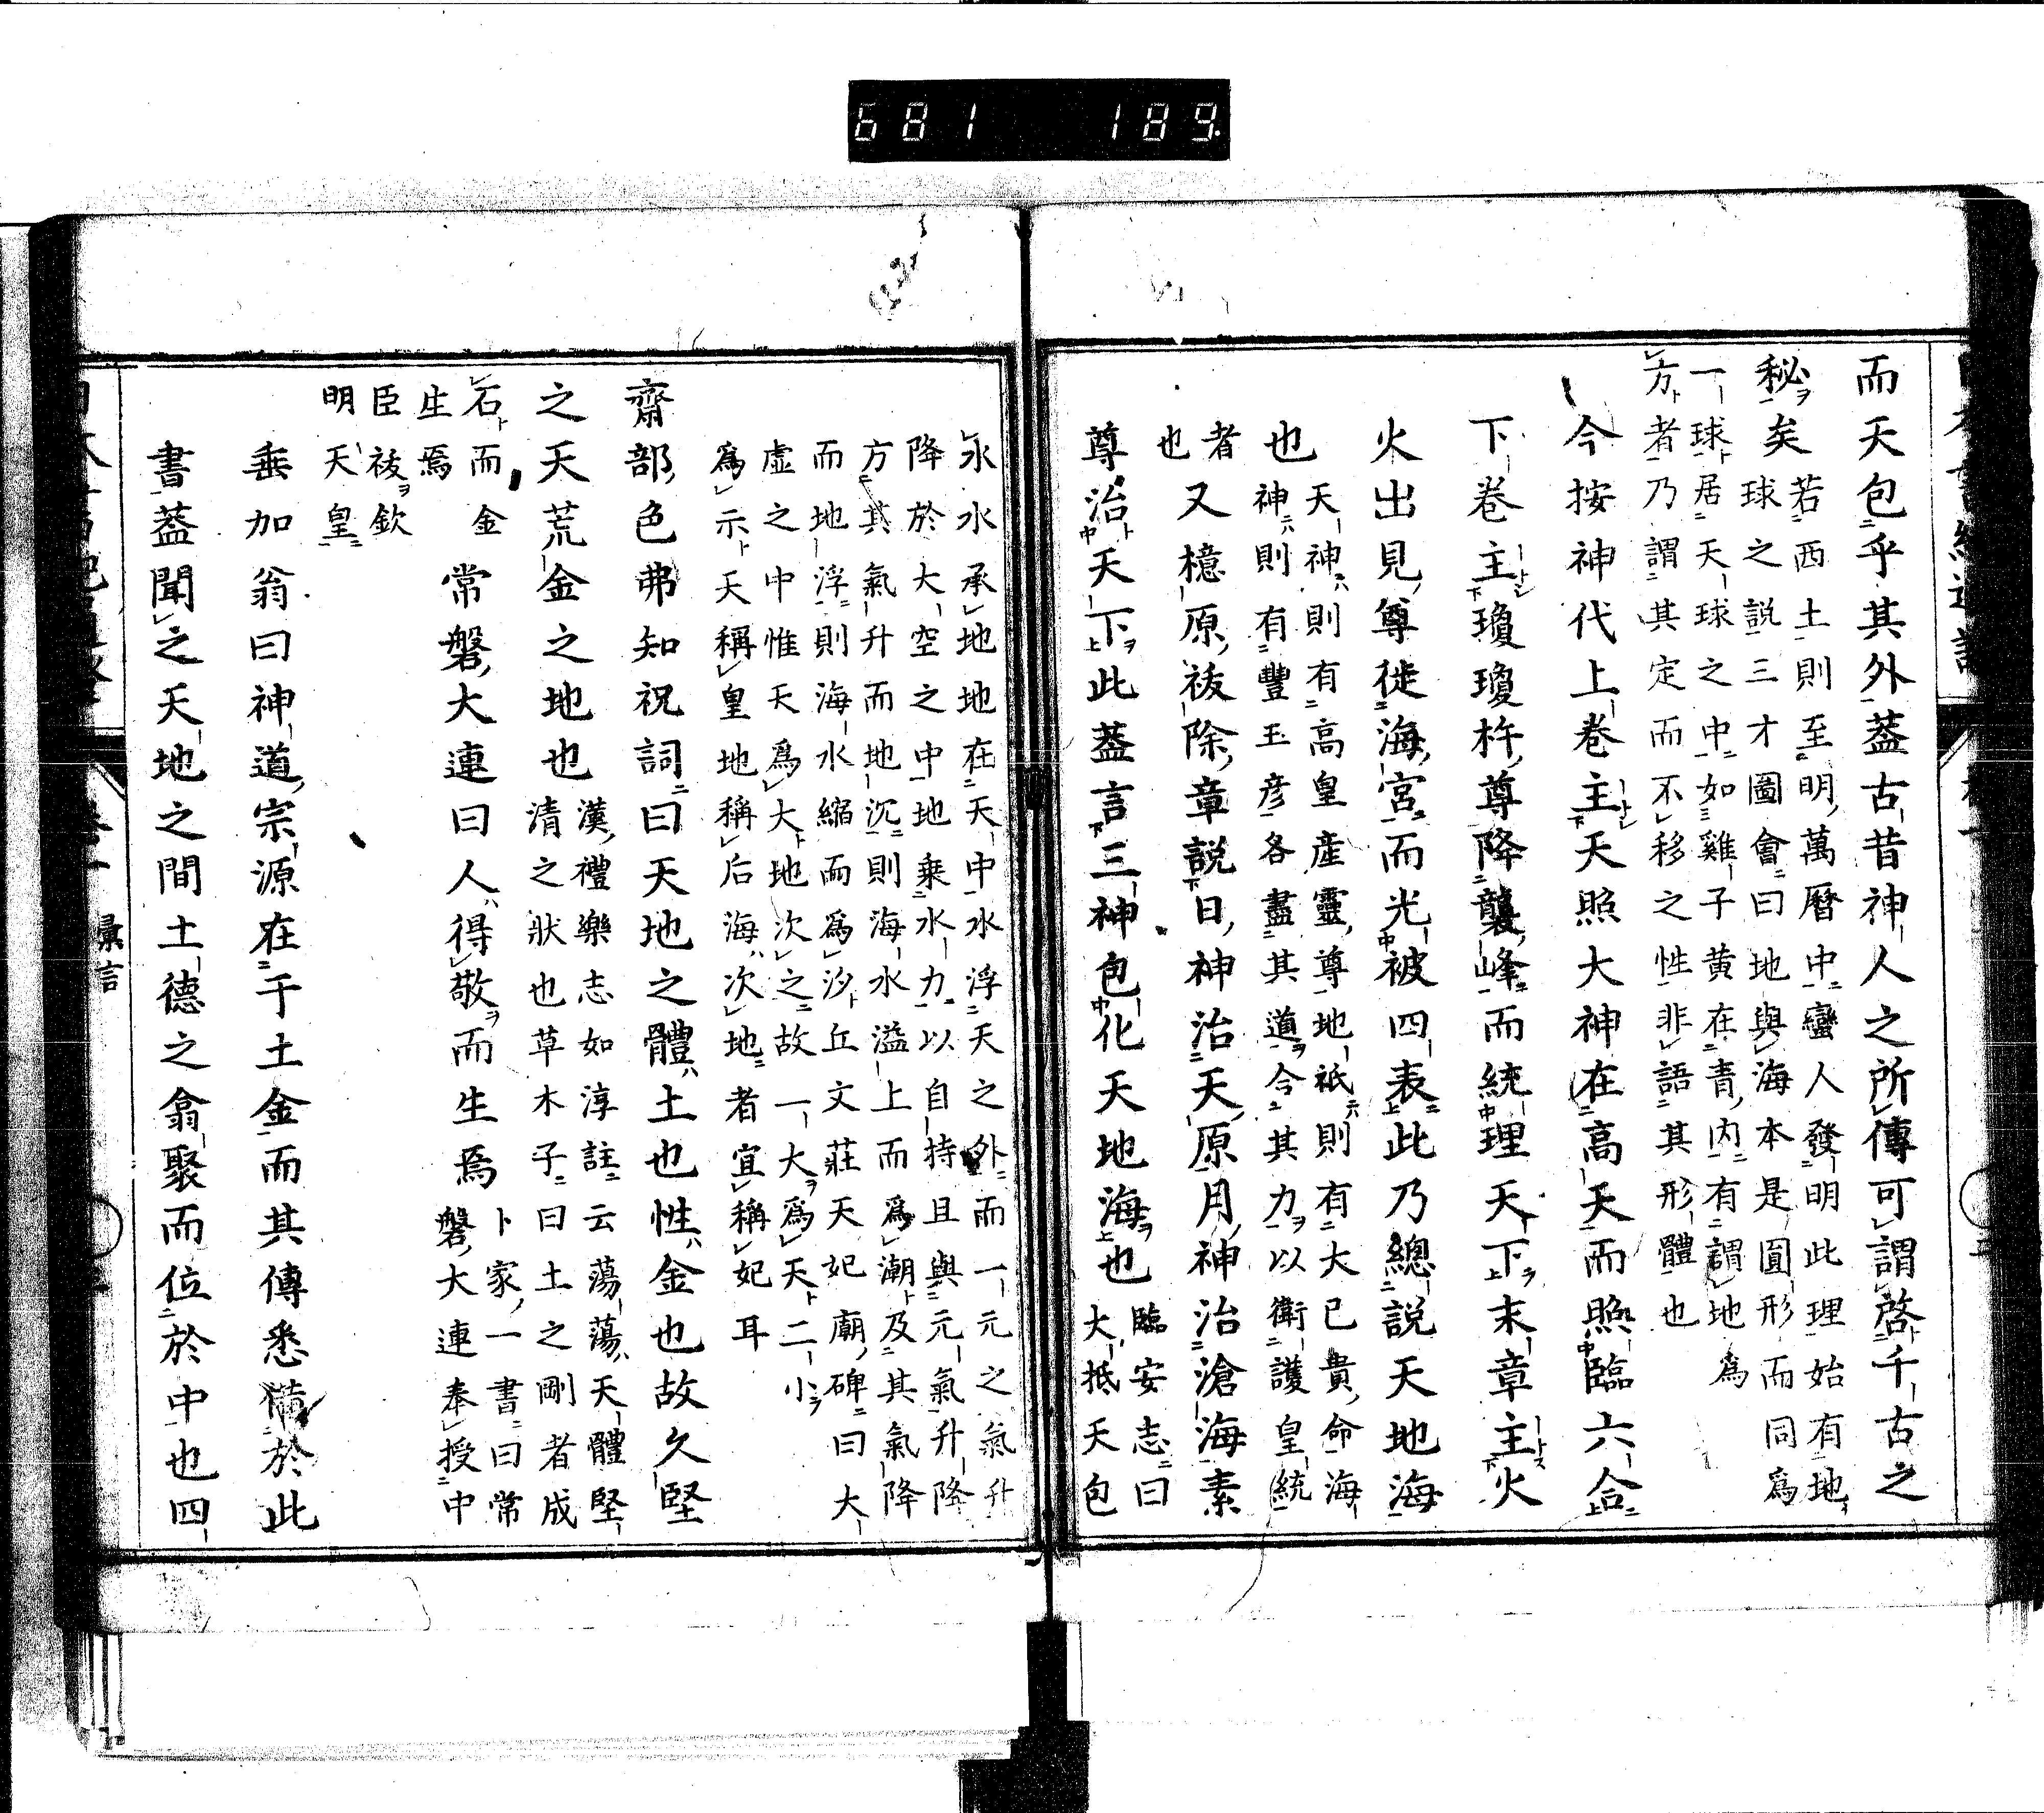 681 189.
而天包乎其外蓋古昔神人之所傳可謂啓千古之
秘矣
若西土則至明萬曆中蠻人發明此理始有地
球之説三才圖會曰地與海本是圓形而同爲
一球居天球之中如雞子黄在青内有謂地爲
方者乃謂其定而不移之性非語其形體也
今按神代上卷主天照大神在高天而照臨六合
下卷主瓊瓊杵尊降襲峰而統理天下末章主火
火出見尊徙海宮而光被四表此乃總説天地海
也
天神則有高皇産靈尊地祇則有大已貴命海
神則有豐玉彦各盡其道今其力以衛護皇統
者
也
又檍原祓除章説曰神治天原月神治滄海素
尊治天下此蓋言三神包化天地海也
臨安志曰
大抵天包
水水承地地在天中水浮天之外而一元之氣升
降於大空之中地乗水力以自持且與元氣升降
方其氣升而地沉則海水溢上而爲潮及其氣降
而地浮則海水縮而爲汐丘文莊天妃廟碑曰大
虚之中惟天爲大地次之故一大爲天二小
爲示天稱皇地稱后海次地者宜稱妃耳
齋部色弗知祝詞曰天地之體土也性金也故久堅
之天荒金之地也
漢禮樂志如淳註云蕩蕩天體堅
清之狀也草木子曰土之剛者成
石而金
生焉
常磐大連曰人得敬而生焉
卜家一書曰常
磐大連奉授中
臣祓欽
明天皇
垂加翁曰神道宗源在于土金而其傳悉備於此
書蓋聞之天地之間土德之翕聚而位於中也四
彙言